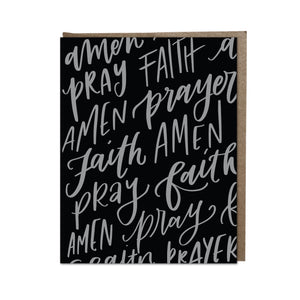 amen a
PRAY FAITH
AMEN prayer
faith AMEN
pray faith
AMEN pray
faith PRAYER